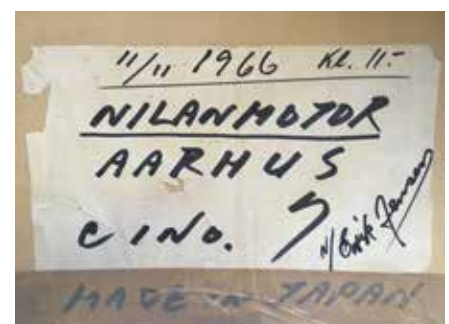 11/11 1966 Kl. 11.-
NILANMOTOR
AARHUS
c INO.
v/ Erik Jensen
MADE IN JAPAN